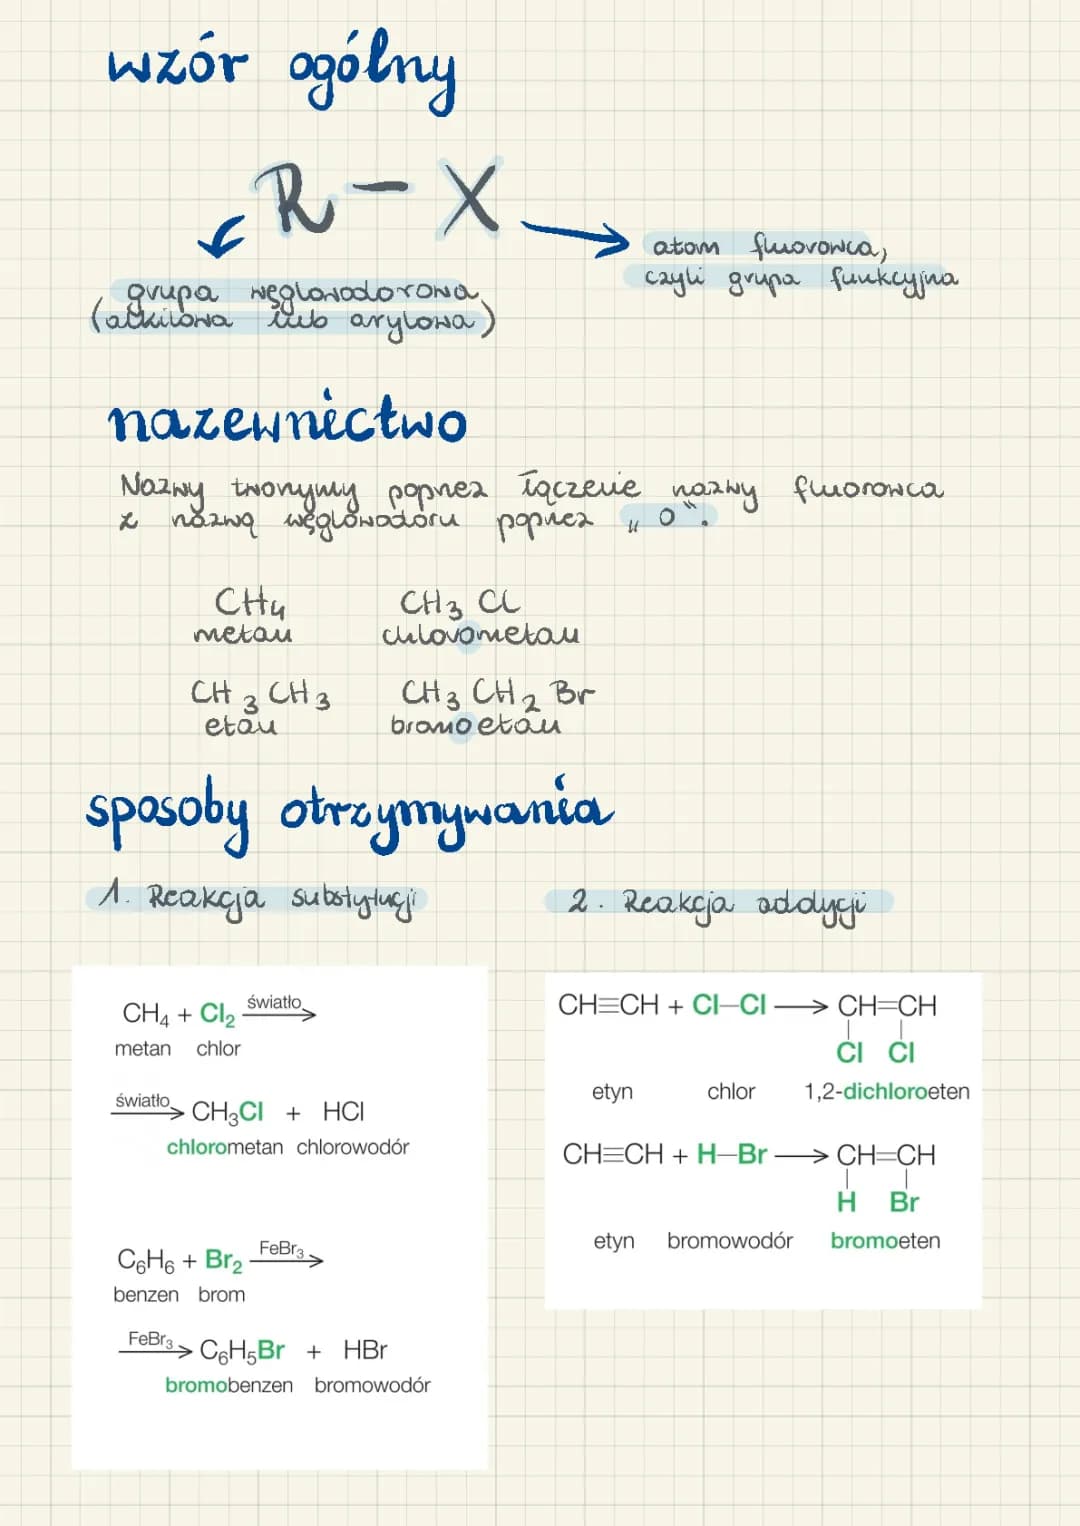 wzór ogólny
R – X
atom fluorowca,
czyli grupa funkcyjna
grupa węglowodorowa
(alkilowa lub arylowa)
nazewnictwo
Nazwy tworzymy poprzez łączenie nazwy fluorowca
z nazwą węglowodoru poprzez „o".
CH4 CH3 Cl
metan chlorometan
CH3 CH3 CH3 CH2 Br
etan bromoetan
sposoby otrzymywania
1. Reakcja substytucji
2. Reakcja addycji
CH₄ + Cl₂ światło→
metan chlor
światło→ CH₃Cl + HCl
chlorometan chlorowodór
C₆H₆ + Br₂ FeBr₃→
benzen brom
FeBr₃→ C₆H₅Br + HBr
bromobenzen bromowodór
CH≡CH + Cl–Cl → CH=CH
Cl Cl
etyn chlor 1,2-dichloroeten
CH≡CH + H–Br → CH=CH
H Br
etyn bromowodór bromoeten